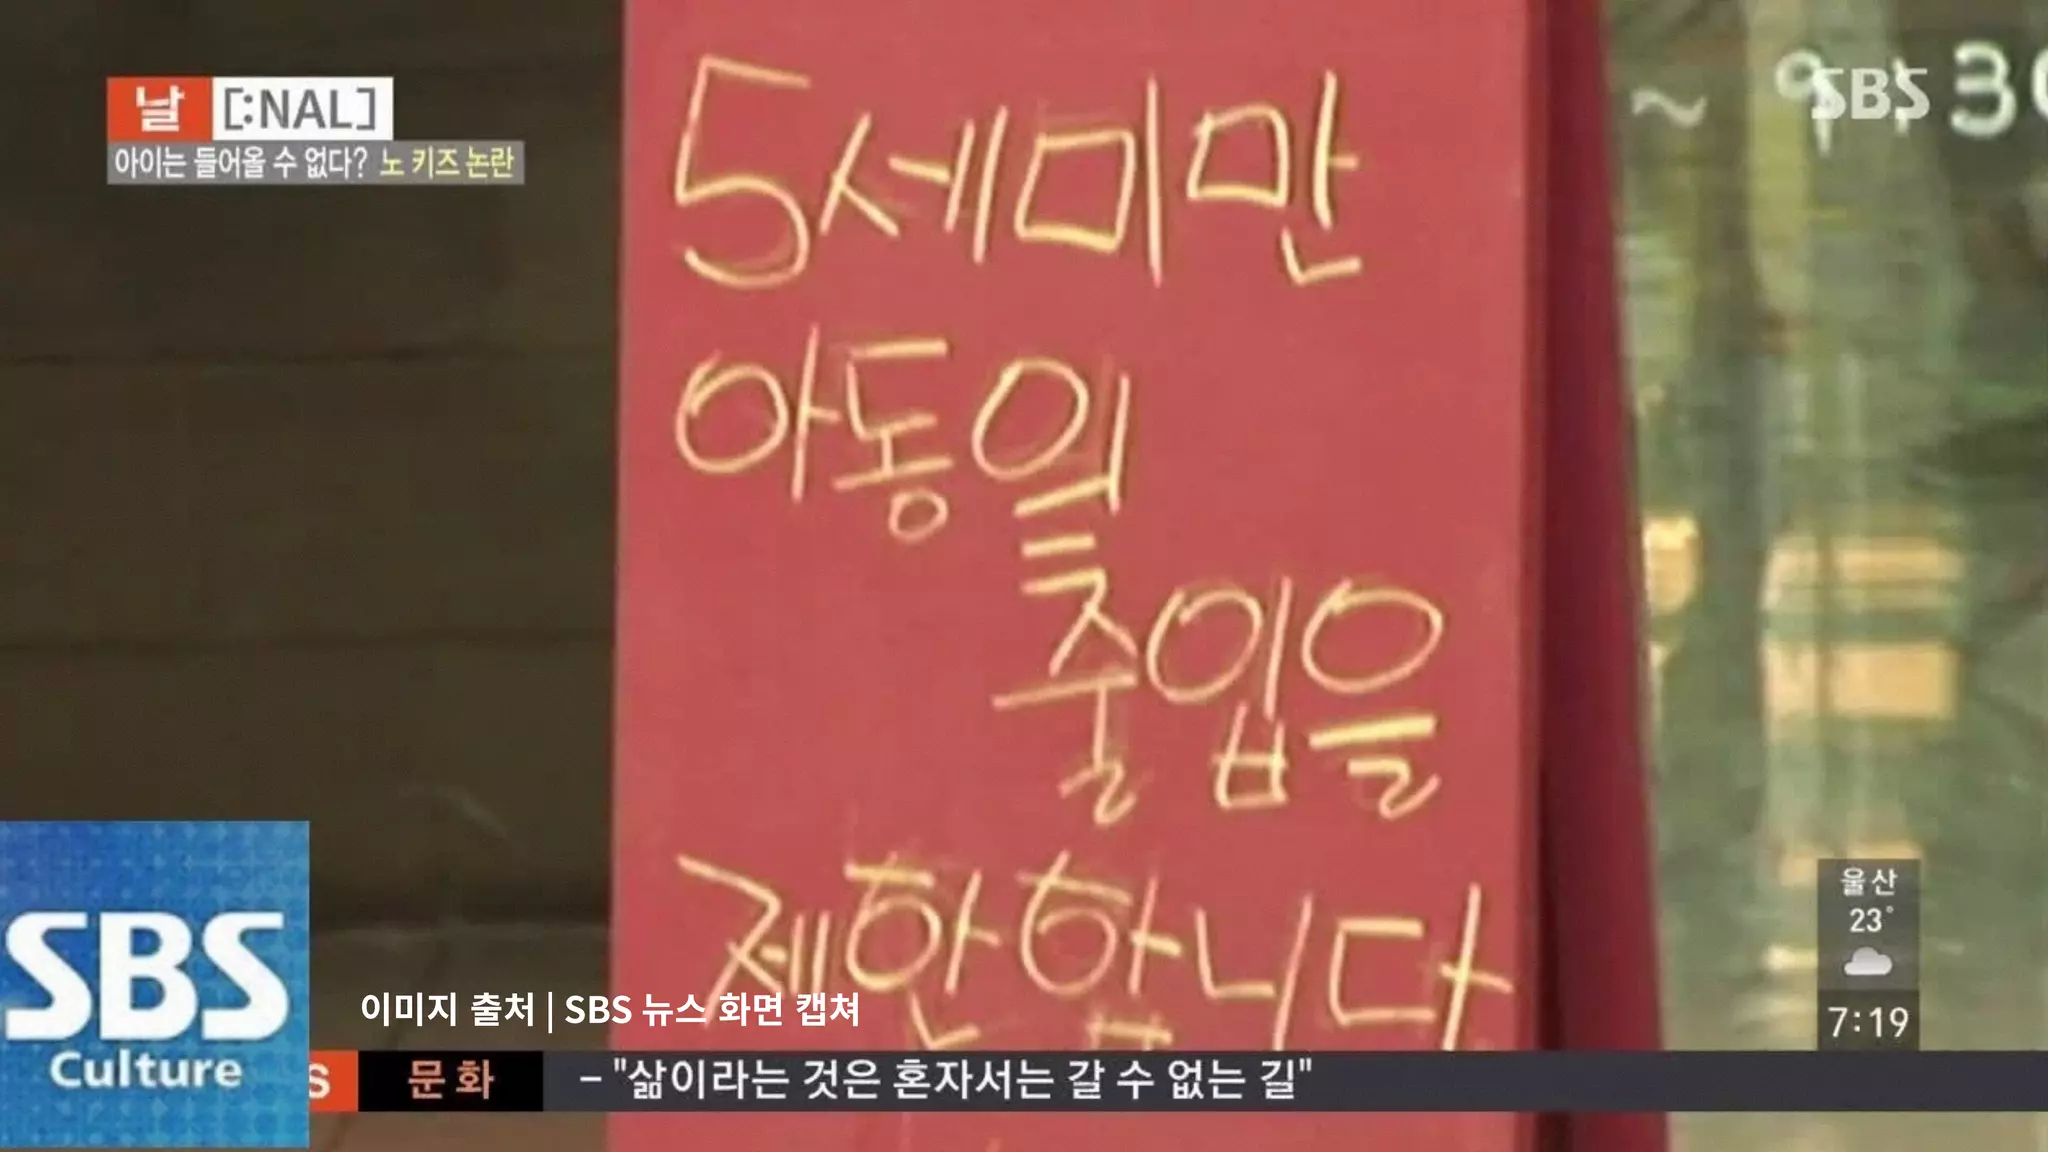 날 [:NAL]
아이는 들어올 수 없다? 노 키즈 논란
SBS
5세미만
아동의
출입을
제한합니다
울산
23°
7:19
이미지 출처 | SBS 뉴스 화면 캡쳐
SBS
Culture
S 문화 - "삶이라는 것은 혼자서는 갈 수 없는 길"